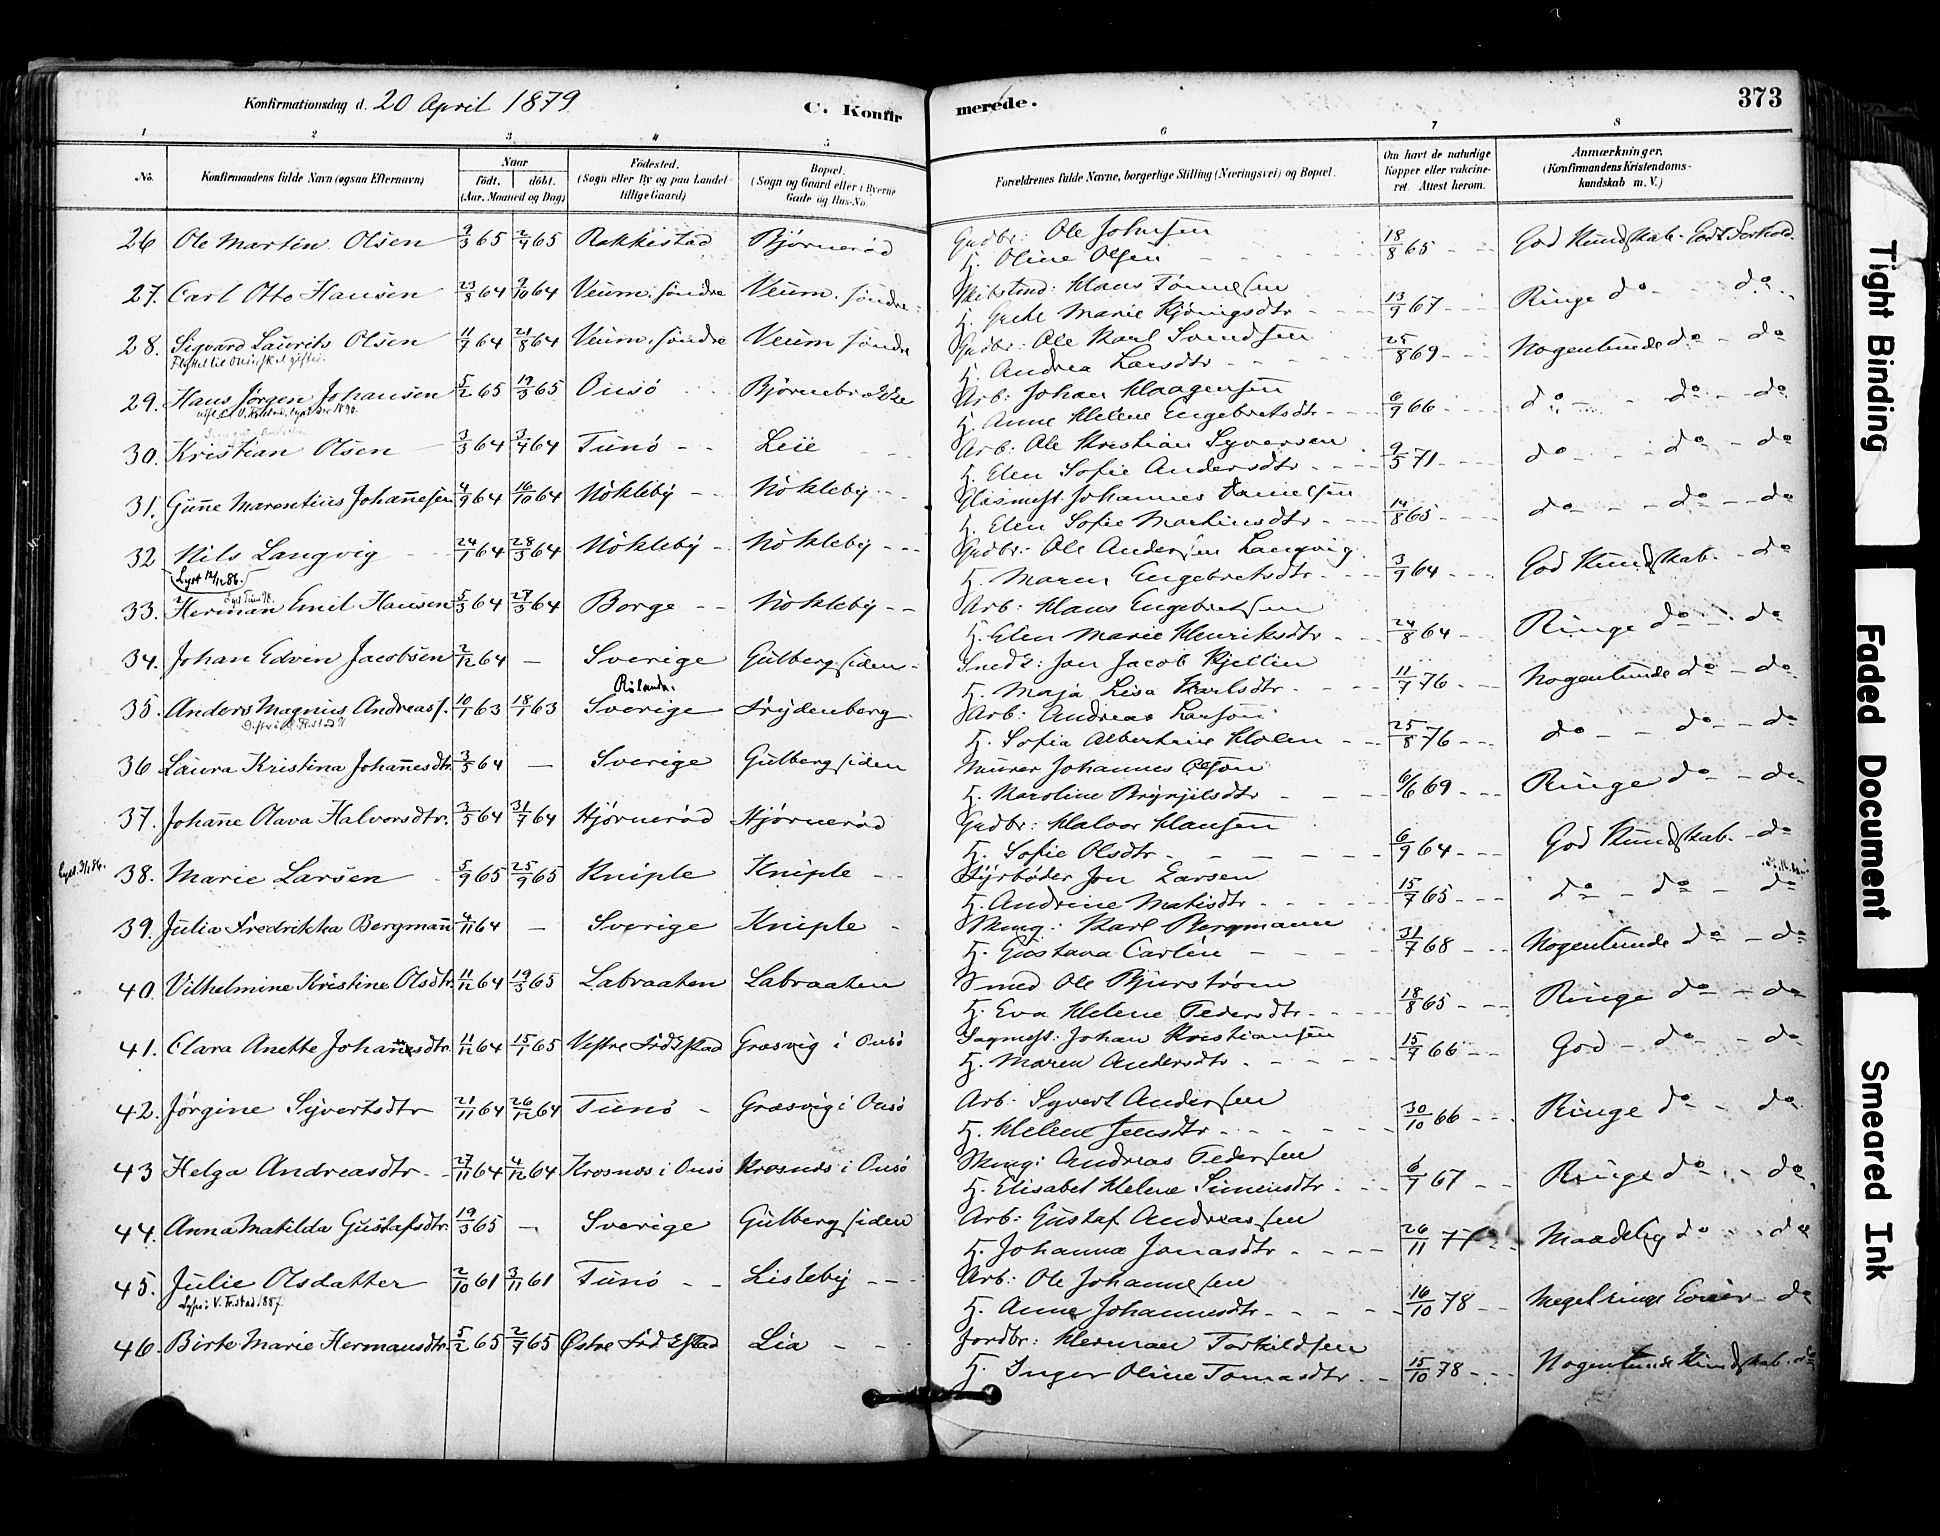 Konfirmationsdag d. 20 April 1879. C. Konfirmerede. 373
1 2 3 4 5 6 7 8
No. Konfirmandens fulde Navn (ogsaa Efternavn) Naar født, døbt. (Aar, Maaned og Dag) Fødested. (Sogn eller By og paa Landet tillige Gaard) Bopæl. (Sogn og Gaard eller i Byerne Gade og Hus-No Forældrenes fulde Navne, borgerlige Stilling (Næringsvei) og Bopæl. Om havt de naturlige Kopper eller vakcineret. Attest herom. Anmærkninger. (Konfirmandens Kristendomskundskab m. V.)
26 Ole Martin Olsen 9/3 65 2/4 65 Rakkestad Bjørnerød Gudbr: Ole Johnsen 18/8 65 God Kundskab. Godt Forhold.
H. Oline Olsen
27. Carl Otto Hansen 23/8 64 9/10 64 Veum, søndre Veum, søndre Skibstmd: Hans Tønnesen 13/9 67 Ringe do do
H. Marie
28. Sigvard Laurits Olsen 11/7 64 21/8 64 Veum, søndre Veum søndre Gudbr: Ole Karl Svendsen 25/8 69 Nogenlunde do do
H. Andrea Larsdtr
29. Hans Jørgen Johansen 5/2 65 19/3 65 Onsø Bjørnebrække Arb: Johan Haagensen 6/9 66 do do do
H. Anne Helene Engebretsdtr
30. Kristian Olsen 3/3 64 3/4 64 Tunø Leie Arb: Ole Kristian Syversen 9/5 71 do do do
H. Elen Sofie Andersdtr
31. Gunne Marentius Johannesen 4/9 64 16/10 64 Nökleby Nökleby Glasmest. Johannes Danielsen 14/8 65 do do do
H. Elen Sofie Martinsdtr
32 Nils Langvig 24/1 64 28/3 64 Nökleby Nökleby Gudbr: Ole Andersen Langvig 3/9 64 God Kundskab. do
Lyst 12/12 86. H. Maren Engebretsdtr
33. Herman Emil Hansen 5/3 64 27/3 64 Borge Nökleby Arb: Hans Engebretsen 24/8 64 Ringe do do
H. Elen Marie Henriksdtr
34. Johan Edvin Jacobsen 2/12 64 — Sverige Gulbergsiden Snedk: Jan Jacob Kjellin 11/7 76 Nogenlunde do do
H. Maja Lisa Karlsdtr
35. Anders Magnus Andreass. 10/1 63 18/1 63 Sverige Frydenberg Arb: Andreas Larson 25/8 76 do do do
H. Sofia Albertine Holen
36 Laura Kristina Johannesdtr. 3/5 64 — Sverige Gulbergsiden Murer Johannes Olson 6/6 69 Ringe do do
H. Karoline Brynjilsdtr
37. Johanne Olava Halvorsdtr. 3/5 64 31/7 64 Hjørnerød Hjørnerød Gudbr: Halvor Hansen 6/9 64 God Kundskab. do
H. Sofie Olsdtr
38. Marie Larsen 5/9 65 25/9 65 Kniple Kniple Fyrbøder Jon Larsen 15/7 65 do do do
H. Andrine Matisdtr
39. Julia Fredrikka Bergmann 4/11 64 — Sverige Kniple Skmag: Karl Bergmann 31/7 68 Nogenlunde do do
H. Gustava Carlén
40. Vilhelmine Kristine Olsdtr. 11/12 64 19/3 65 Labraaten Labraaten Smed Ole Bjurstrøm 18/8 65 Ringe do do
H. Eva Helene Pedersdtr.
41. Clara Anette Johannesdtr. 11/12 64 15/1 65 Vestre Fredkstad Græsvig i Onsø Sagmest: Johan Kristiansen 15/9 66 God do do
H. Maren Andersdtr
42. Jørgine Syvertsdtr 21/11 64 26/12 64 Tunø Græsvig i Onsø Arb. Syvert Andersen 30/10 66 Ringe do do
H. Helene Jensdtr
43 Helga Andreasdtr. 27/11 64 4/12 64 Krosnæs i Onsø Krosnæs i Onsø Skmag: Andreas Pedersen 6/7 67 Ringe do do
H. Elisabet Helene Simensdtr
44. Anna Matilda Gustafsdtr. 19/3 65 — Sverige Gulbergsiden Arb: Gustaf Andreassen 26/11 77 Maadelig do do
H. Johanna Jonasdtr
45. Julie Olsdatter 2/10 61 3/11 61 Tunø Lisleby Arb: Ole Johannesen 16/10 78 Meget ringe do
H. Anne Johannesdtr
46. Birte Marie Hermansdtr. 5/2 65 2/7 65 Østre Fredkstad Lia Jordbr: Herman Torkildsen 15/10 78 Nogenlunde Kundskab. do
H. Inger Oline Tomasdtr
Tight Binding
Faded Document
Smeared Ink